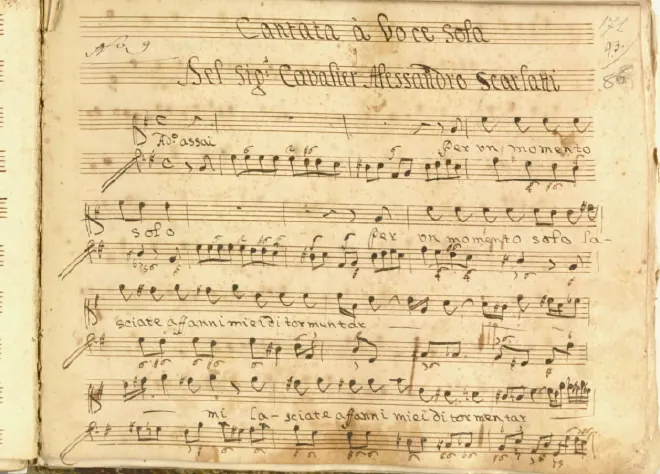 Cantata à Voce Sola
No. 9
Del Sig.r Cavalier Alessandro Scarlatti
Ad.o assai
Per un momento
solo
Per un momento solo la-
sciate affanni miei di tormentar
mi la-sciate affanni miei di tormentar